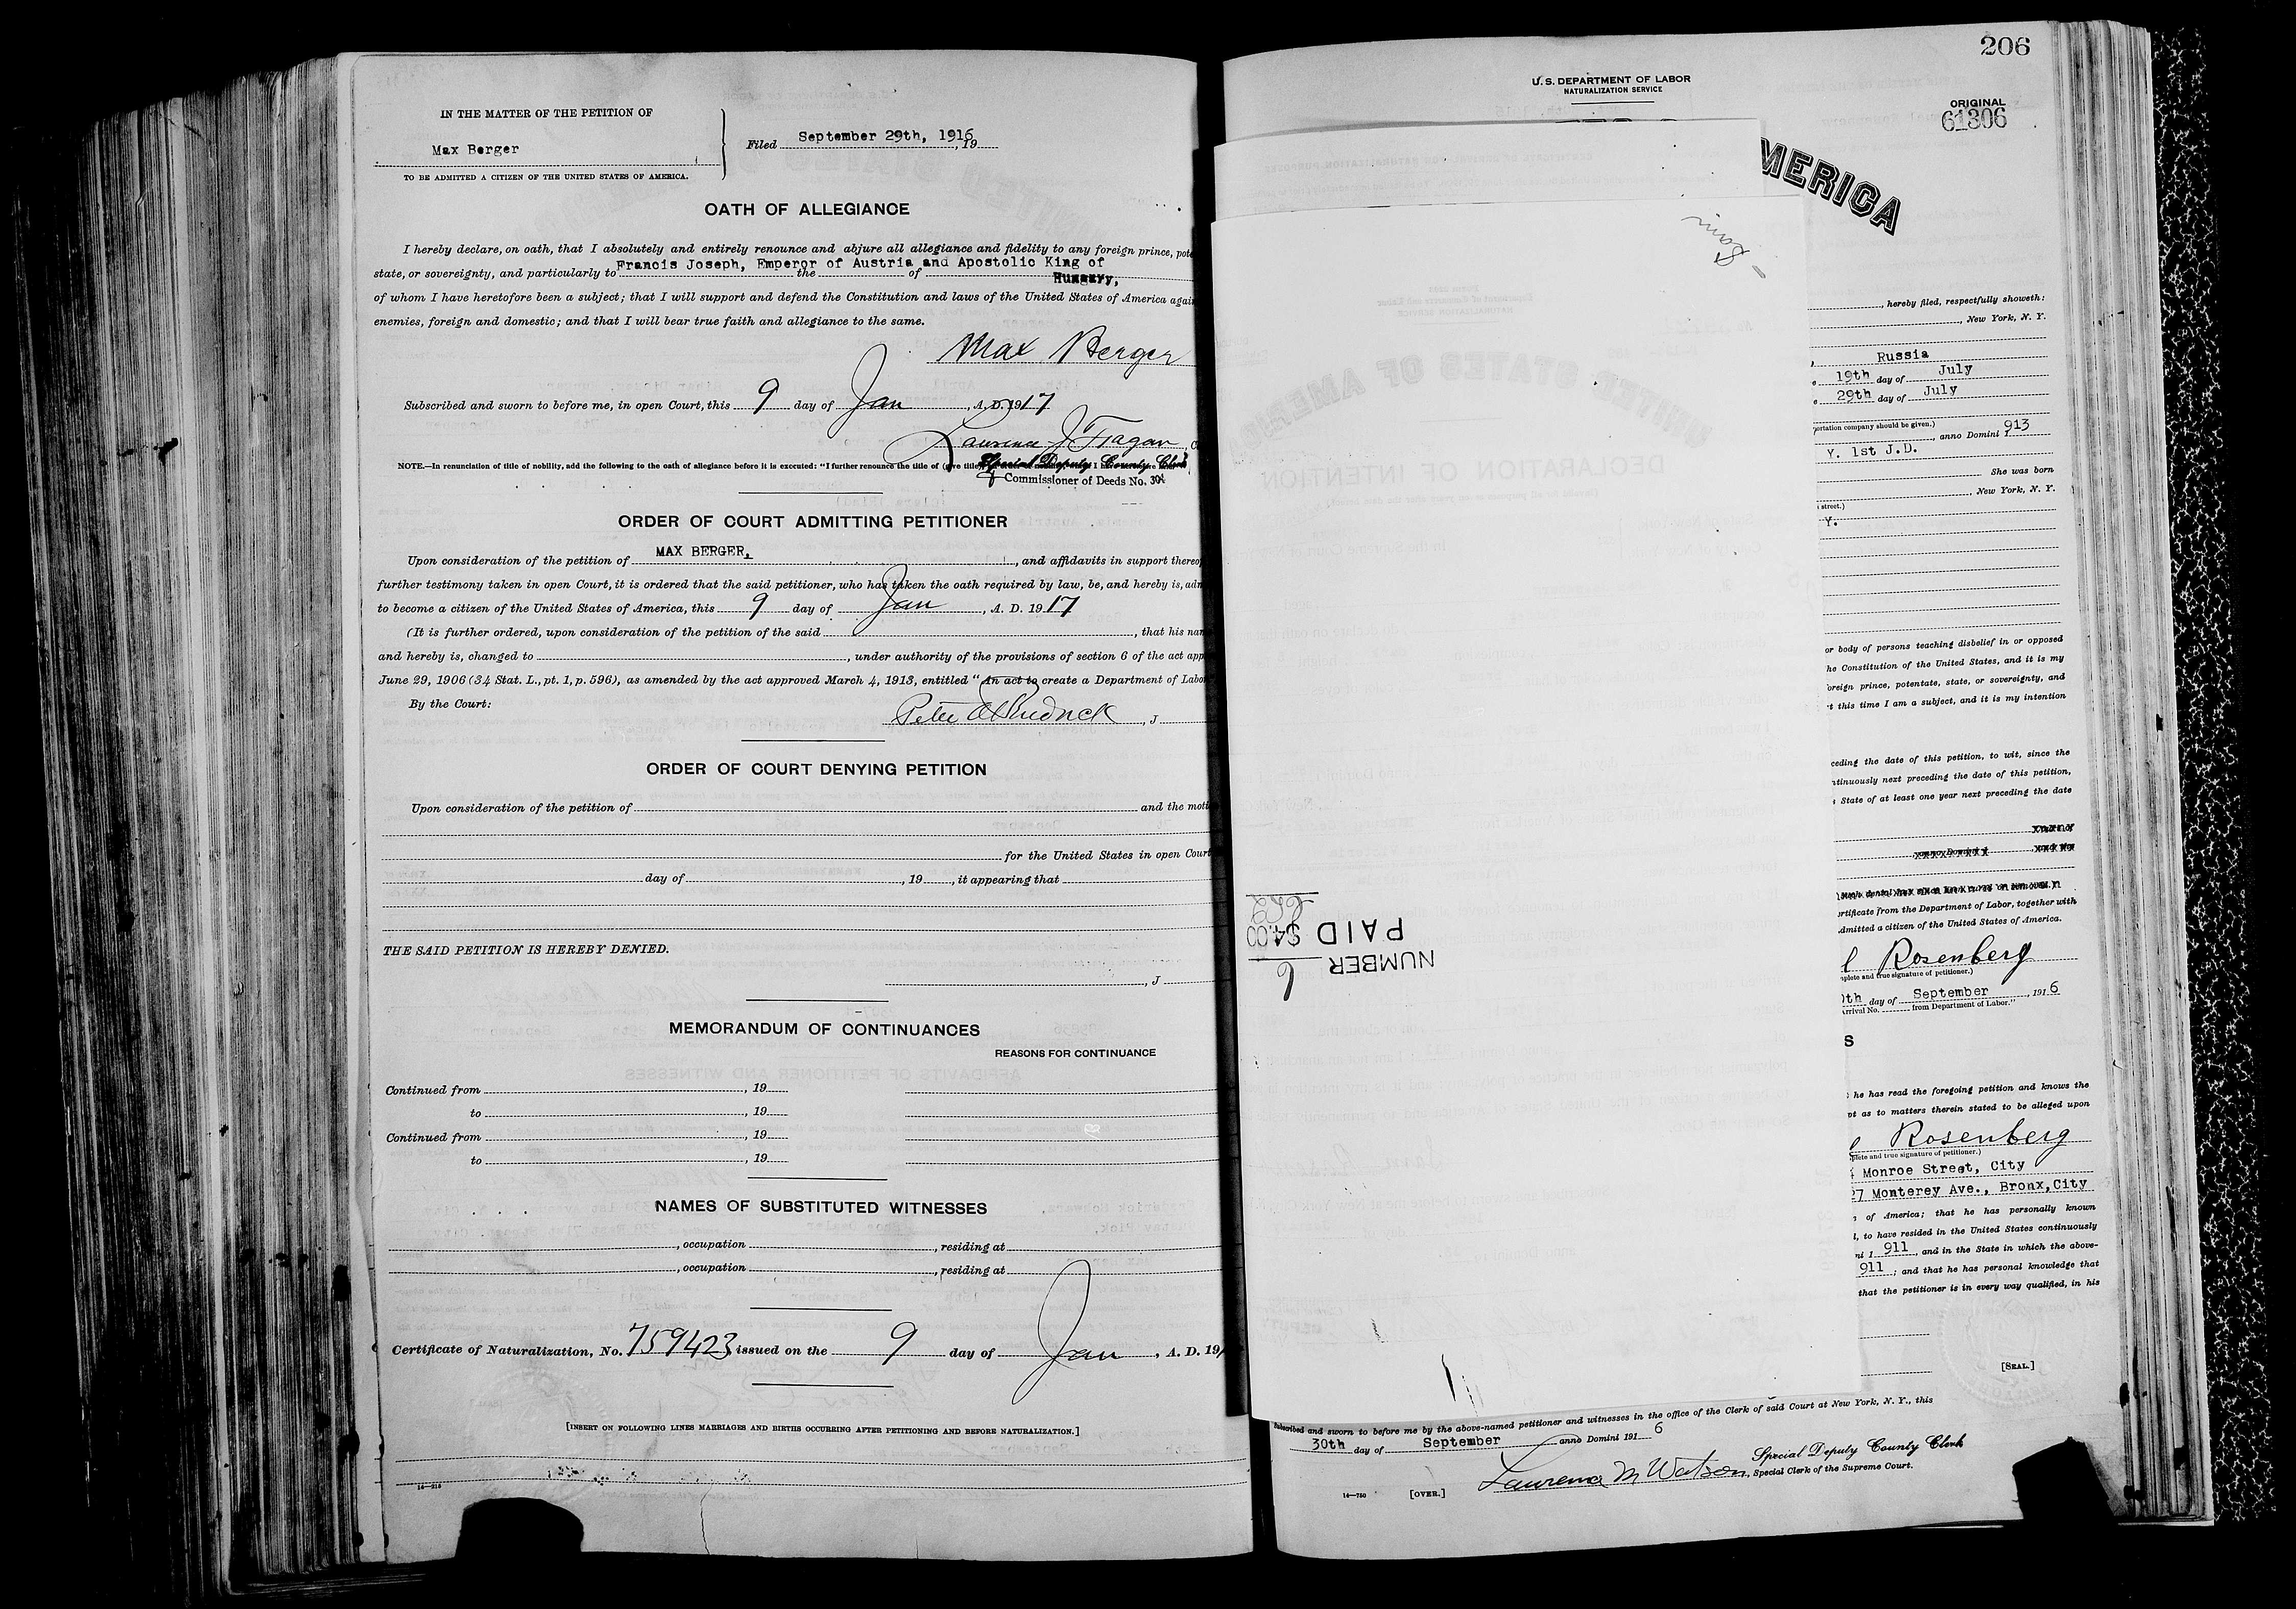 IN THE MATTER OF THE PETITION OF
Max Berger
Filed September 29th, 1916, 19
TO BE ADMITTED A CITIZEN OF THE UNITED STATES OF AMERICA.
OATH OF ALLEGIANCE
I hereby declare, on oath, that I absolutely and entirely renounce and abjure all allegiance and fidelity to any foreign prince, pote
state, or sovereignty, and particularly to Francis Joseph, Emperor of Austria and Apostolic King of
the of Hungary,
of whom I have heretofore been a subject; that I will support and defend the Constitution and laws of the United States of America again
enemies, foreign and domestic; and that I will bear true faith and allegiance to the same.
Max Berger
Subscribed and sworn to before me, in open Court, this 9 day of Jan, A.D. 1917
NOTE.—In renunciation of title of nobility, add the following to the oath of allegiance before it is executed: "I further renounce the title of (give title
Special Deputy County Clerk
Commissioner of Deeds No. 30
ORDER OF COURT ADMITTING PETITIONER
Upon consideration of the petition of MAX BERGER, and affidavits in support thereof
further testimony taken in open Court, it is ordered that the said petitioner, who has taken the oath required by law, be, and hereby is, adm
to become a citizen of the United States of America, this 9 day of Jan, A. D. 1917
(It is further ordered, upon consideration of the petition of the said , that his nam
and hereby is, changed to , under authority of the provisions of section 6 of the act app
June 29, 1906 (34 Stat. L., pt. 1, p. 596), as amended by the act approved March 4, 1913, entitled "An act to create a Department of Labor
By the Court:
, J
ORDER OF COURT DENYING PETITION
Upon consideration of the petition of and the moti
for the United States in open Court
day of , 19 , it appearing that
THE SAID PETITION IS HEREBY DENIED.
, J
MEMORANDUM OF CONTINUANCES
REASONS FOR CONTINUANCE
Continued from , 19
to , 19
Continued from , 19
to , 19
NAMES OF SUBSTITUTED WITNESSES
, occupation , residing at
, occupation , residing at
Certificate of Naturalization, No. 759423 issued on the 9 day of Jan, A. D. 19
[INSERT ON FOLLOWING LINES MARRIAGES AND BIRTHS OCCURRING AFTER PETITIONING AND BEFORE NATURALIZATION.]
206
U. S. DEPARTMENT OF LABOR
NATURALIZATION SERVICE
ORIGINAL
61306
MERICA
, hereby filed, respectfully showeth:
, New York, N. Y.
Russia
19th day of July
29th day of July
portation company should be given.)
, anno Domini 1913
Y. 1st J.D.
She was born
, New York, N. Y.
street.)
Y.
or body of persons teaching disbelief in or opposed
he Constitution of the United States, and it is my
oreign prince, potentate, state, or sovereignty, and
t this time I am a subject, and it is my intention
ceding the date of this petition, to wit, since the
ntinuously next preceding the date of this petition,
State of at least one year next preceding the date
NUMBER 6
PAID $4.00
ertificate from the Department of Labor, together with
dmitted a citizen of the United States of America.
l Rosenberg
plete and true signature of petitioner.)
th day of September, 1916
Arrival No. from Department of Labor."
S
he has read the foregoing petition and knows the
pt as to matters therein stated to be alleged upon
Rosenberg
plete and true signature of petitioner.)
Monroe Street, City
27 Monterey Ave., Bronx, City
of America; that he has personally known
, to have resided in the United States continuously
ni 1911, and in the State in which the above-
911; and that he has personal knowledge that
that the petitioner is in every way qualified, in his
[SEAL.]
Subscribed and sworn to before me by the above-named petitioner and witnesses in the office of the Clerk of said Court at New York, N. Y., this
30th day of September anno Domini 1916
Special Deputy County Clerk
Laurence M Watson, Special Clerk of the Supreme Court.
14—750 [OVER.]